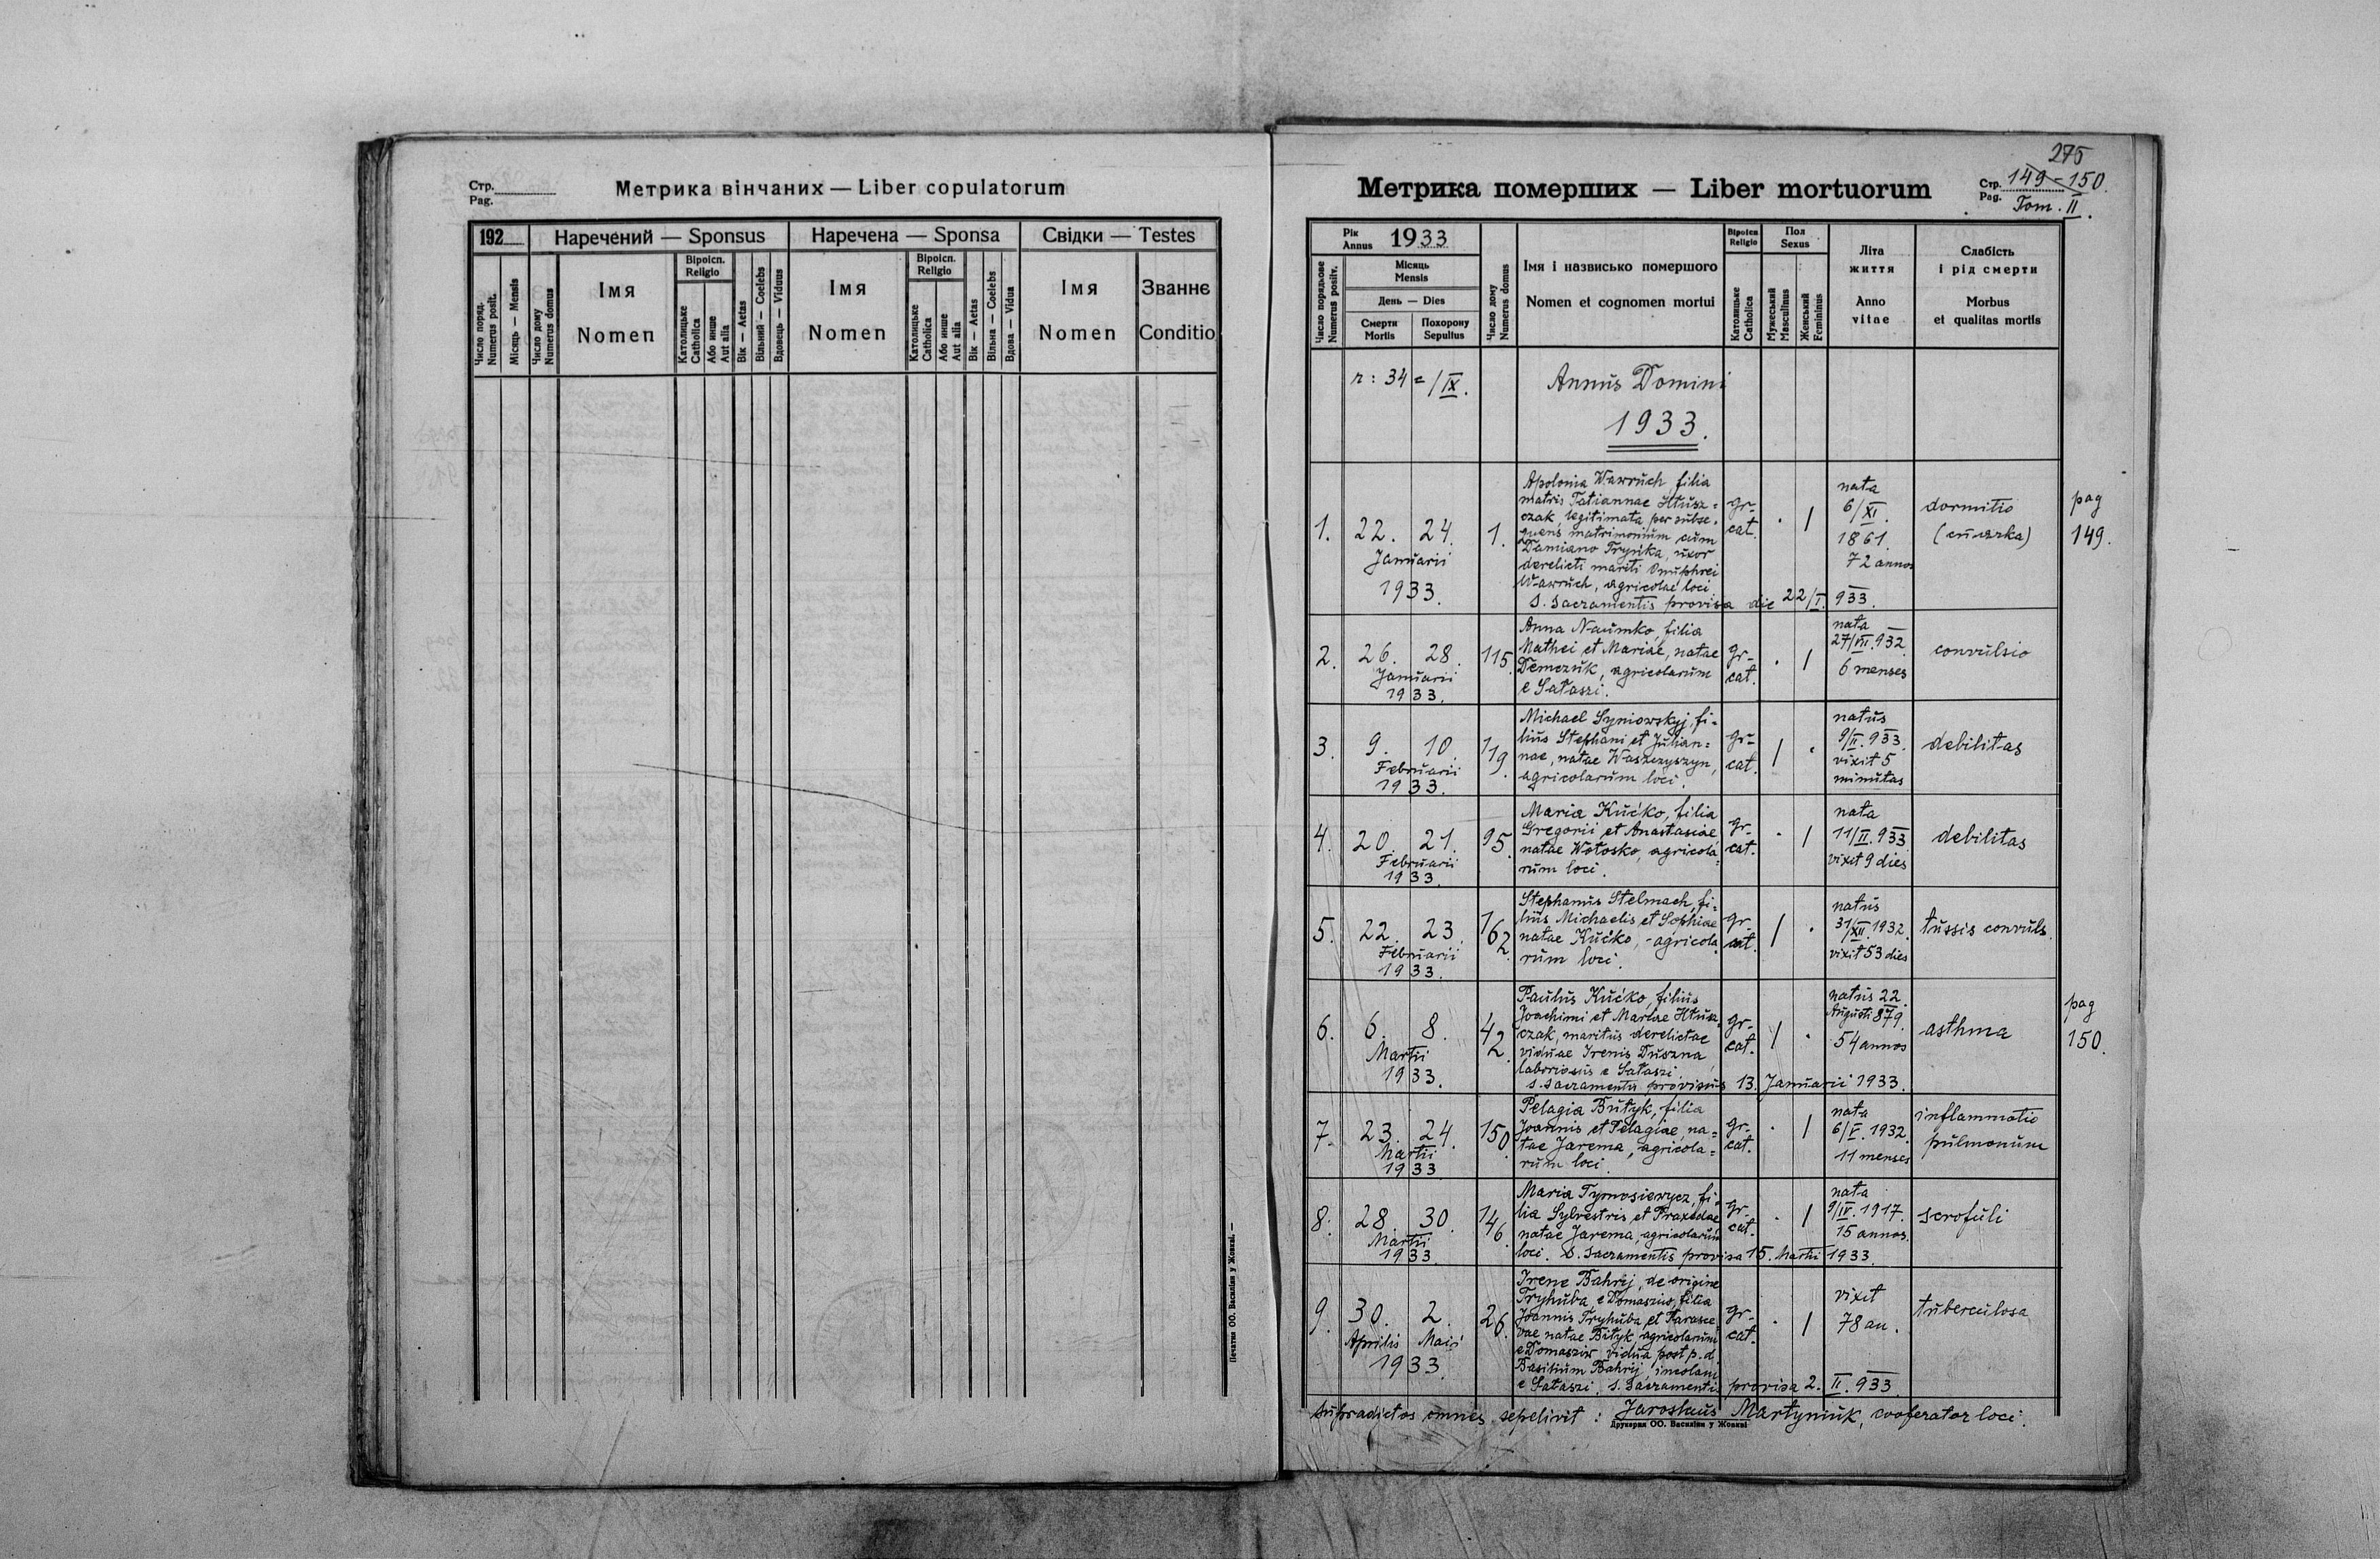 Стр.
Pag.
Метрика вінчаних — Liber copulatorum
192
Наречений — Sponsus
Наречена — Sponsa
Свідки — Testes
Число поряд.
Numerus posit.
Місяць — Mensis
Число дому
Numerus domus
Імя
Nomen
Віроісп.
Religio
Католицьке
Catholica
Або инше
Aut alia
Вік — Aetas
Вільний — Coelebs
Вдовець — Viduus
Імя
Nomen
Віроісп.
Religio
Католицьке
Catholica
Або инше
Aut alia
Вік — Aetas
Вільна — Coelebs
Вдова — Vidua
Імя
Nomen
Званнє
Conditio
Печатня ОО. Василіян у Жовкві. —
275
Метрика померших — Liber mortuorum
Стр. 149-150.
Pag. Tom. II.
Рік
Annus 1933
Число порядкове
Numerus positv.
Місяць
Mensis
День — Dies
Смерти
Mortis
Похорону
Sepultus
Число дому
Numerus domus
Імя і назвисько помершого
Nomen et cognomen mortui
Віроісп.
Religio
Католицьке
Catholica
Пол
Sexus
Мужеський
Masculinus
Женський
Femininus
Літа
життя
Anno
vitae
Слабість
і рід смерти
Morbus
et qualitas mortis
r: 34 = /IX.
Annus Domini
1933.
1. 22. 24.
Januarii
1933.
1.
Apolonia Wawruch, filia
matris Tatiannae Hłusz=
czak, legitimata per subse=
quens matrimonium cum
Damiano Tryńka, uxor
derelicti mariti Onuphrei
Wawruch, agricolae loci
S. Sacramentis provisa die 22/I. 933.
gr-
cat.
nata
6/XI.
1861.
72 annos
dormitio
pag
149.
2. 26. 28.
Januarii
1933.
115.
Anna Naumko, filia
Mathei et Mariae, natae
Demczuk, agricolarum
e Sałaszi.
gr-
cat.
nata
27/VII.932.
6 menses
convulsio
3. 9. 10.
Februarii
1933.
119.
Michael Syniowskyj, fi=
lius Stephani et Julian=
nae, natae Waszczyszyn,
agricolarum loci.
gr-
cat.
natus
9/II. 933.
vixit 5
minutas
debilitas
4. 20. 21.
Februarii
1933.
95.
Maria Kućko, filia
Gregorii et Anastasiae
natae Wołosko, agricola=
rum loci.
gr-
cat.
nata
11/II. 933
vixit 9 dies
debilitas
5. 22. 23.
Februarii
1933.
162.
Stephanus Stelmach, fi=
lius Michaelis et Sophiae
natae Kućko, - agricola
rum loci.
gr-
cat.
natus
31/XII. 1932.
vixit 53 dies
tussis convuls.
6. 6. 8.
Martii
1933.
42.
Paulus Kućko, filius
Joachimi et Mariae Hłusz
czak, maritus derelictae
viduae Irenis Duszna
laboriosus e Sałaszi.
s. sacramentis provisus 13. Januarii 1933.
gr-
cat.
natus 22.
Augusti 879.
54 annos
asthma
pag
150.
7. 23. 24.
Martii
1933
150.
Pelagia Butyk, filia
Joannis et Pelagiae, na=
tae Jarema, agricola=
rum loci.
gr-
cat.
nata
6/V. 1932.
11 menses
inflammatio
pulmonum
8. 28. 30.
Martii
1933.
146.
Maria Tymosiewycz, fi=
lia Sylvestris et Praxedae
natae Jarema, agricolarum
loci. S. Sacramentis provisa 15. Martii 1933.
gr-
cat.
nata
9/IV. 1917.
15 annos.
scrofuli
9. 30. 2.
Aprilis Maii
1933.
26.
Irene Bahrij, de origine
Tryhuba, e Domasziw, filia
Joannis Tryhuba et Parasce
vae natae Bityk, agricolarum
e Domasziw vidua post p. d.
Basilium Bahrij, incolam
e Sałaszi, s. Sacramentis provisa 2. II. 933.
gr-
cat.
vixit
78 an.
tuberculosa
Supradictos omnes sepelivit: Jarosłaus Martyniuk, cooperator loci.
Друкарня ОО. Василіян у Жовкві